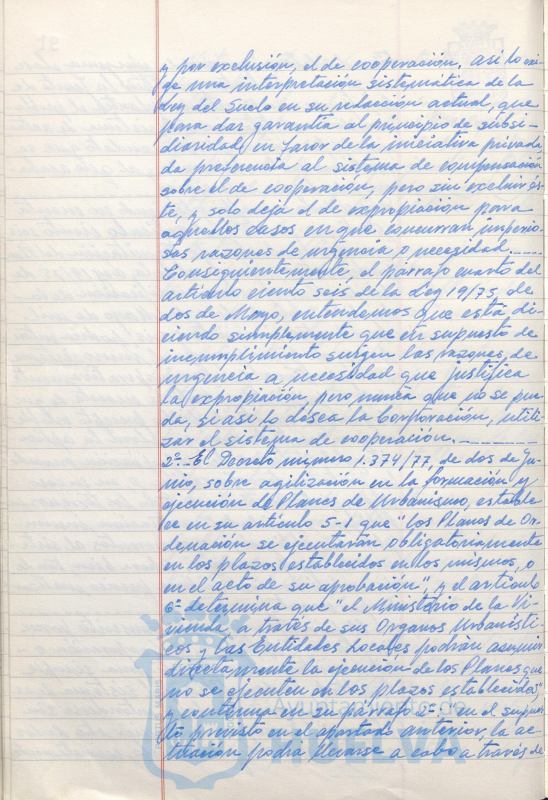 y por exclusión, el de cooperación. Así lo exi-
ge una interpretación sistemática de la
Ley del Suelo en su redacción actual, que
para dar garantía al principio de subsi-
diariedad, en favor de la iniciativa privada
da preferencia al sistema de compensación
sobre el de cooperación, pero sin excluir és-
te, y solo deja el de expropiación para
aquellos casos en que concurran imperio-
sas razones de urgencia o necesidad.
Consiguientemente, el párrafo cuarto del
artículo ciento seis de la Ley 19/75, de
dos de Mayo, entendemos que está di-
ciendo simplemente que en supuesto de
incumplimiento surgen las razones, de
urgencia a necesidad que justifica
la expropiación, pero nunca que no se pue-
da, si así lo desea la Corporación, utili-
zar el sistema de cooperación.
2º.- El Decreto número 1.374/77, de dos de Ju-
nio, sobre agilización en la formación y
ejecución de Planes de Urbanismo, estable
ce en su artículo 5-1 que "los Planes de Or-
denación se ejecutarán obligatoriamente
en los plazos establecidos en los mismos, o
en el acto de su aprobación", y el artículo
6º determina que "el Ministerio de la Vi-
vienda, a través de sus Organos Urbanísti-
cos y las Entidades Locales podrán asumir
directamente la ejecución de los Planes que
no se ejecuten en los plazos establecidos"
y continua en su párrafo 2º: "en el supues
to previsto en el apartado anterior, la ac-
tuación podrá llevarse a cabo a través de
Ayuntamiento de